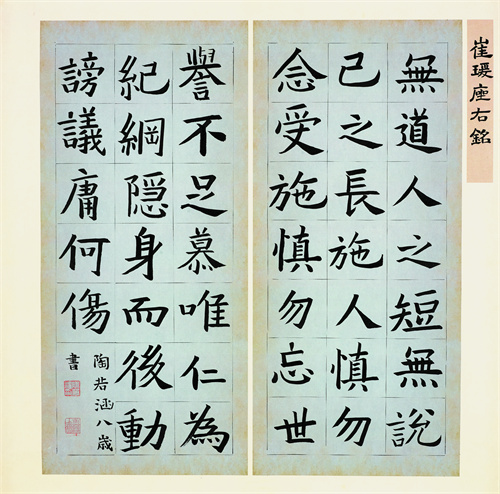 崔瑗座右銘
無道人之短無說
己之長施人慎勿
念受施慎勿忘世
譽不足慕唯仁為
紀綱隱身而後動
謗議庸何傷
陶若涵八歲
書